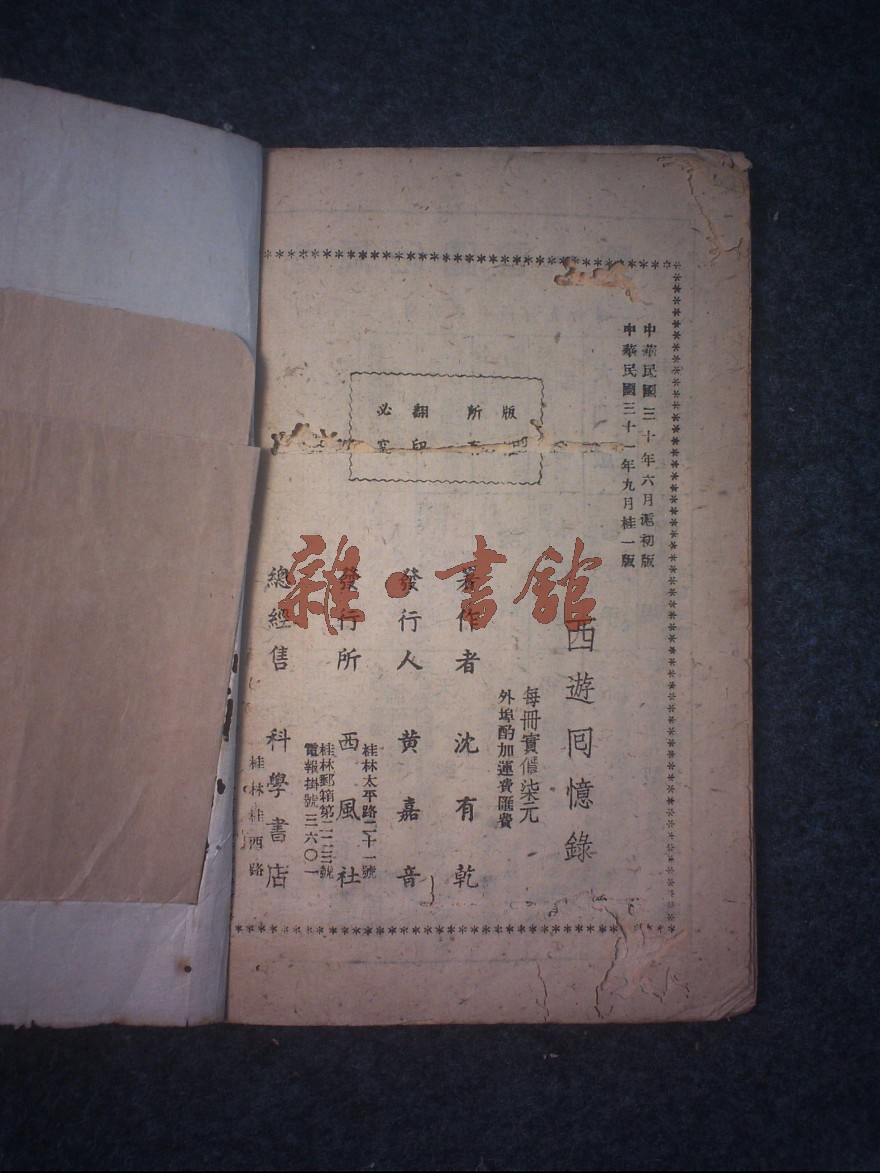 中華民國三十年六月滬初版
中華民國三十一年九月桂一版
版
所
翻印
必究
西遊囘憶錄
每冊實價柒元
外埠酌加運費匯費
著作者 沈有乾
發行人 黃嘉音
發行所 西風社
桂林太平路二十一號
桂林郵箱第二二三號
電報掛號三六〇一
總經售 科學書店
桂林桂西路
雜·書館